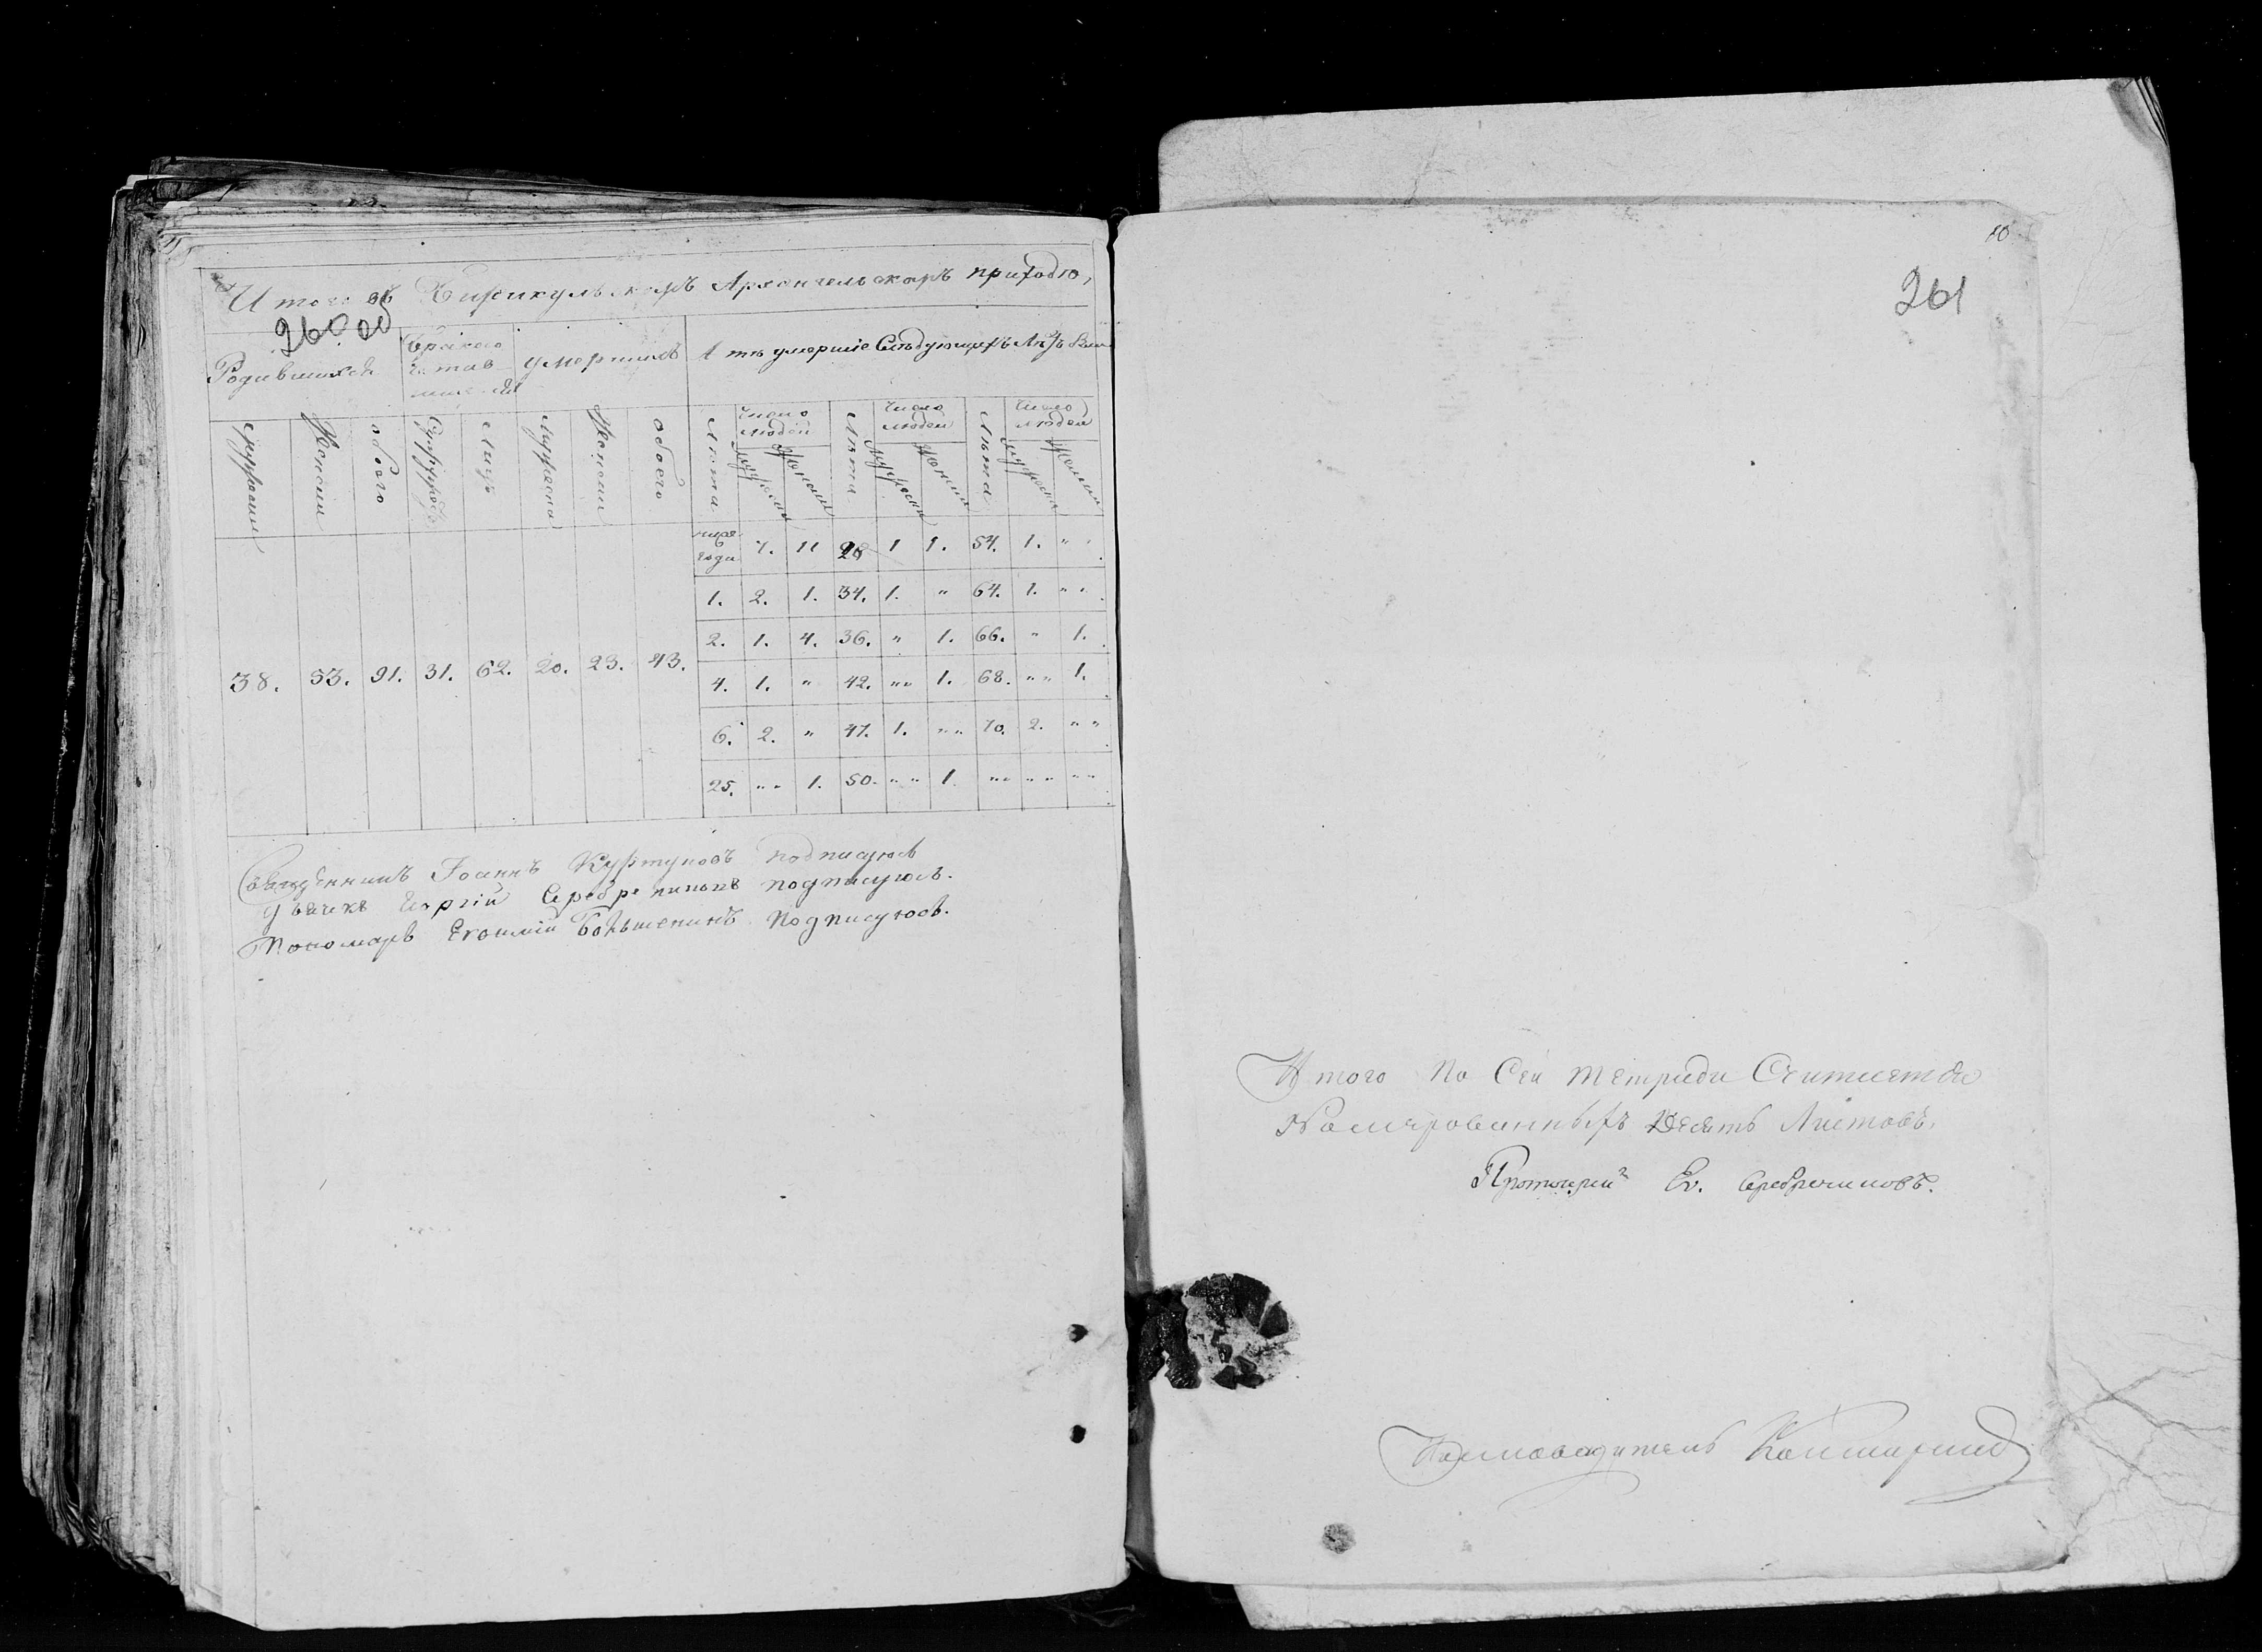 Итого въ Архангельскомъ приходѣ,
260 об
Родившихся
умершихъ
А тѣ умершіе Слѣдующихъ Лѣтъ были
Мужеска Женска обоего Супружествъ Лицъ Мужеска Женска обоего Лѣта
Число людей Лѣта Число людей Лѣта Число людей
Мужеска Женска Мужеска Женска Мужеска Женска
ниже года 7. 11 28 1 1. 54. 1. „ „
1. 2. 1. 34. 1. „ 64. 1. „ „
2. 1. 4. 36. „ 1. 66. „ 1.
38. 53. 91. 31. 62. 20. 23. 43.
4. 1. „ 42. „ „ 1. 68. „ „ 1.
6. 2. „ 47. 1. „ „ 70. 2. „ „
25. „ „ 1. 50. „ „ 1. „ „ „ „ „ „
Священникъ Іоаннъ подписуюсь
Дьячекъ Сергій Серебрениковъ подписуюсь.
Пономарь Большенинъ Подписуюсь.
10
261
Итого По Сей тетради Считается
Номерованныхъ Десять Листовъ.
Протоіерей Ев. Серебрениковъ.